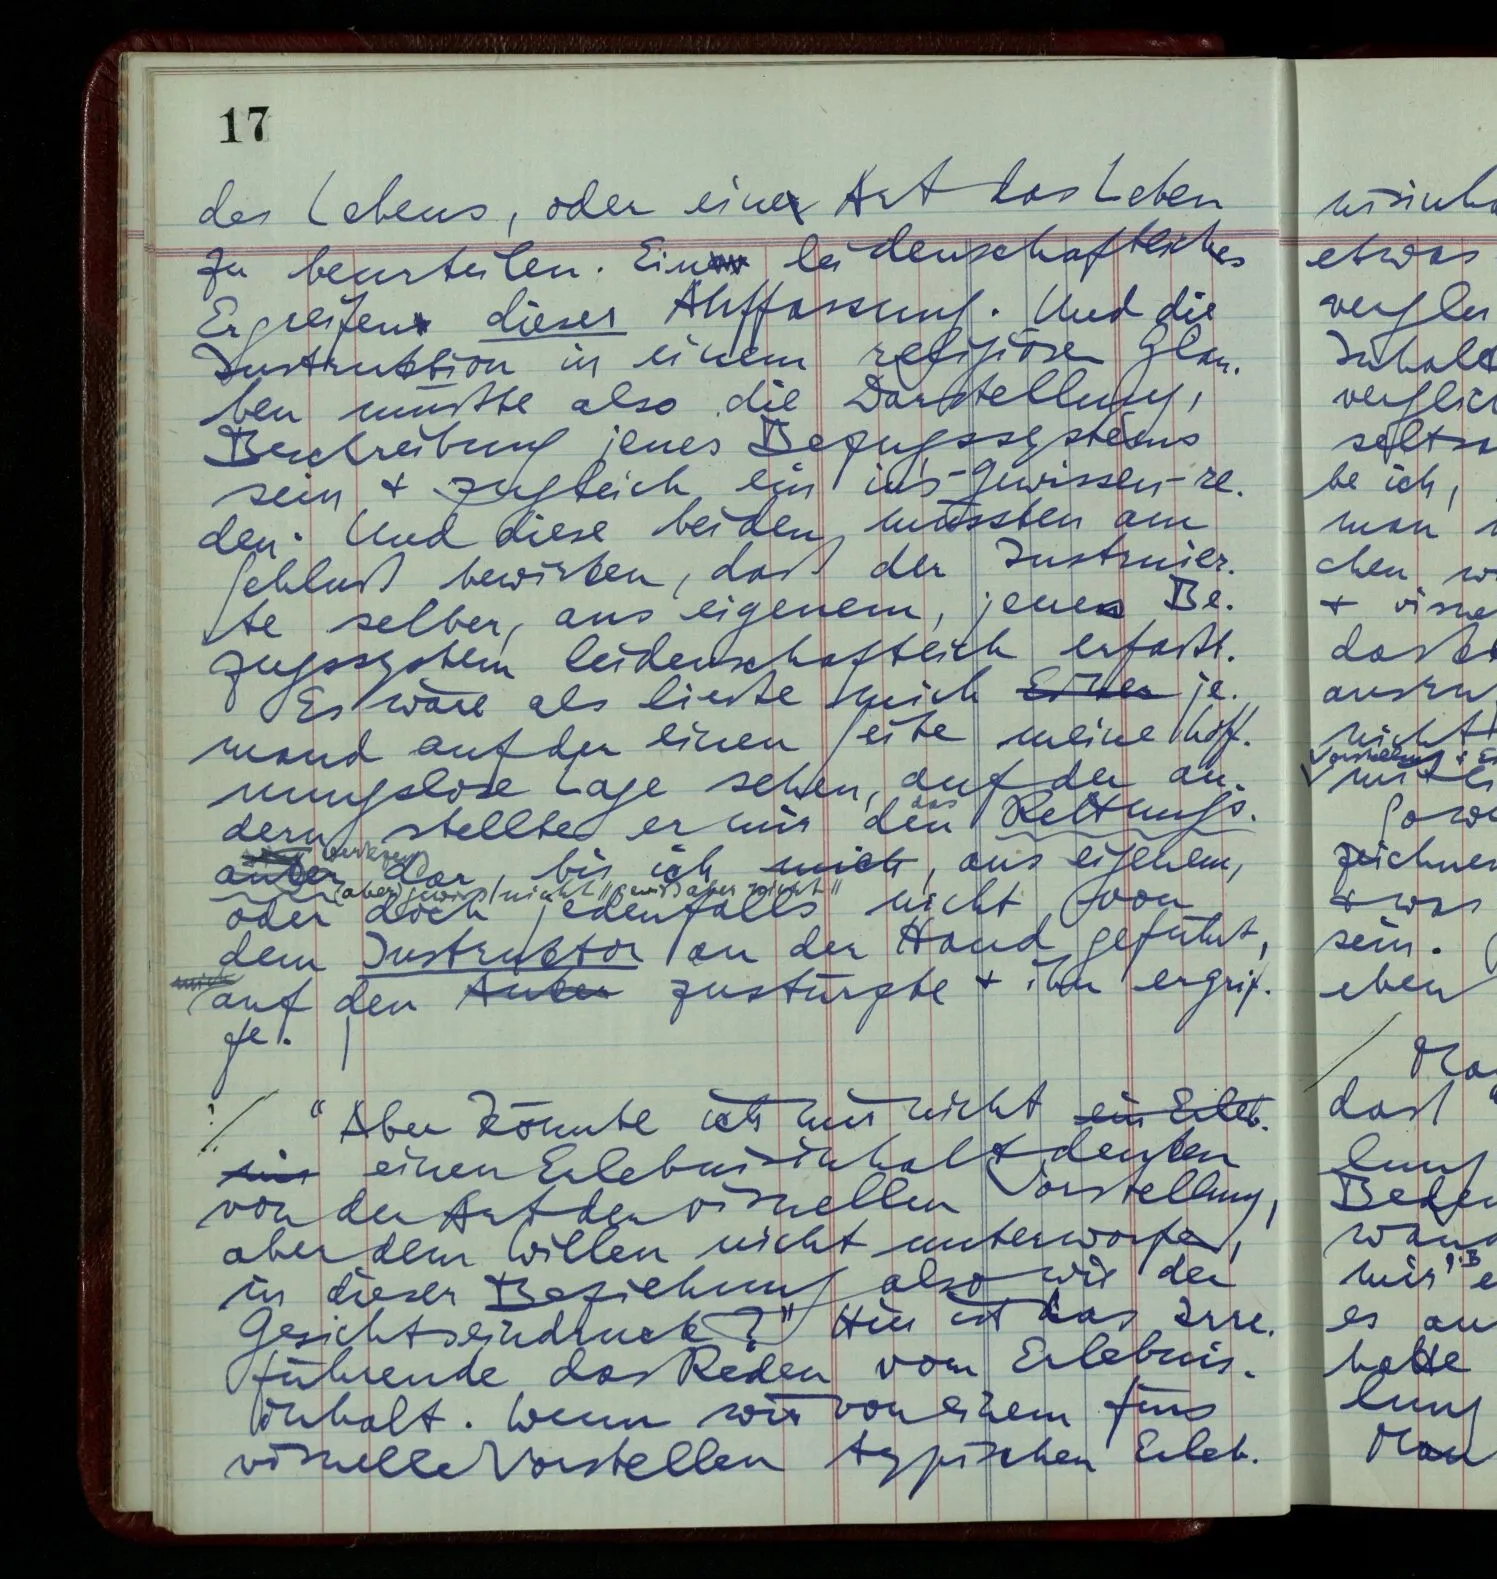 17
des Lebens, oder eine Art das Leben
zu beurteilen. Ein leidenschaftliches
Ergreifen dieser Auffassung. Und die
Instruktion in einem religiösen Glau-
ben müßte also die Darstellung,
Beschreibung jenes Bezugssystems
sein + zugleich ein in's-Gewissen-re-
den. Und diese beiden müssten am
Schluß bewirken, daß der Instruier-
te selber, aus eigenem, jenes Be-
zugssystem leidenschaftlich erfaßt.
Es wäre als ließe mich Einer je-
mand auf der einen Seite meine hoff-
nungslose Lage sehen, auf der an-
das
dern stellte er mir den Rettungs-
werkzeug
anker dar, bis ich mich, aus eigenem,
(aber) gewiß nicht "gewiß aber nicht"
oder doch jedenfalls nicht von
dem Instruktor an der Hand geführt,
mich
auf den Anker zustürzte + ihn ergrif-
fe.
"Aber könnte ich mir nicht ein Erleb-
nis einen Erlebnisinhalt denken
von der Art der visuellen Vorstellung,
aber dem Willen nicht unterworfen,
in dieser Beziehung also wie der
Gesichtseindruck?" Hier ist das Irre-
führende das Reden vom Erlebnis-
inhalt. Wenn wir von einem fürs
visuelle Vorstellen typischen Erleb-
etwas
Inhalt
be ich,
man
chen
+
das
nicht
Vorstellung +
zeichnen
+ was
sein.
eben
daß
lung
mir z.B
es
hatte
lung
Man